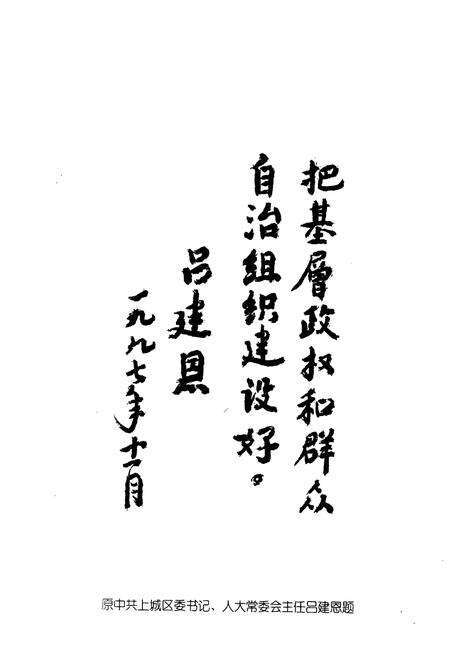 把基層政权和群众
自治组织建设好。
吕建恩
一九九七年十一月
原中共上城区委书记、人大常委会主任吕建恩题